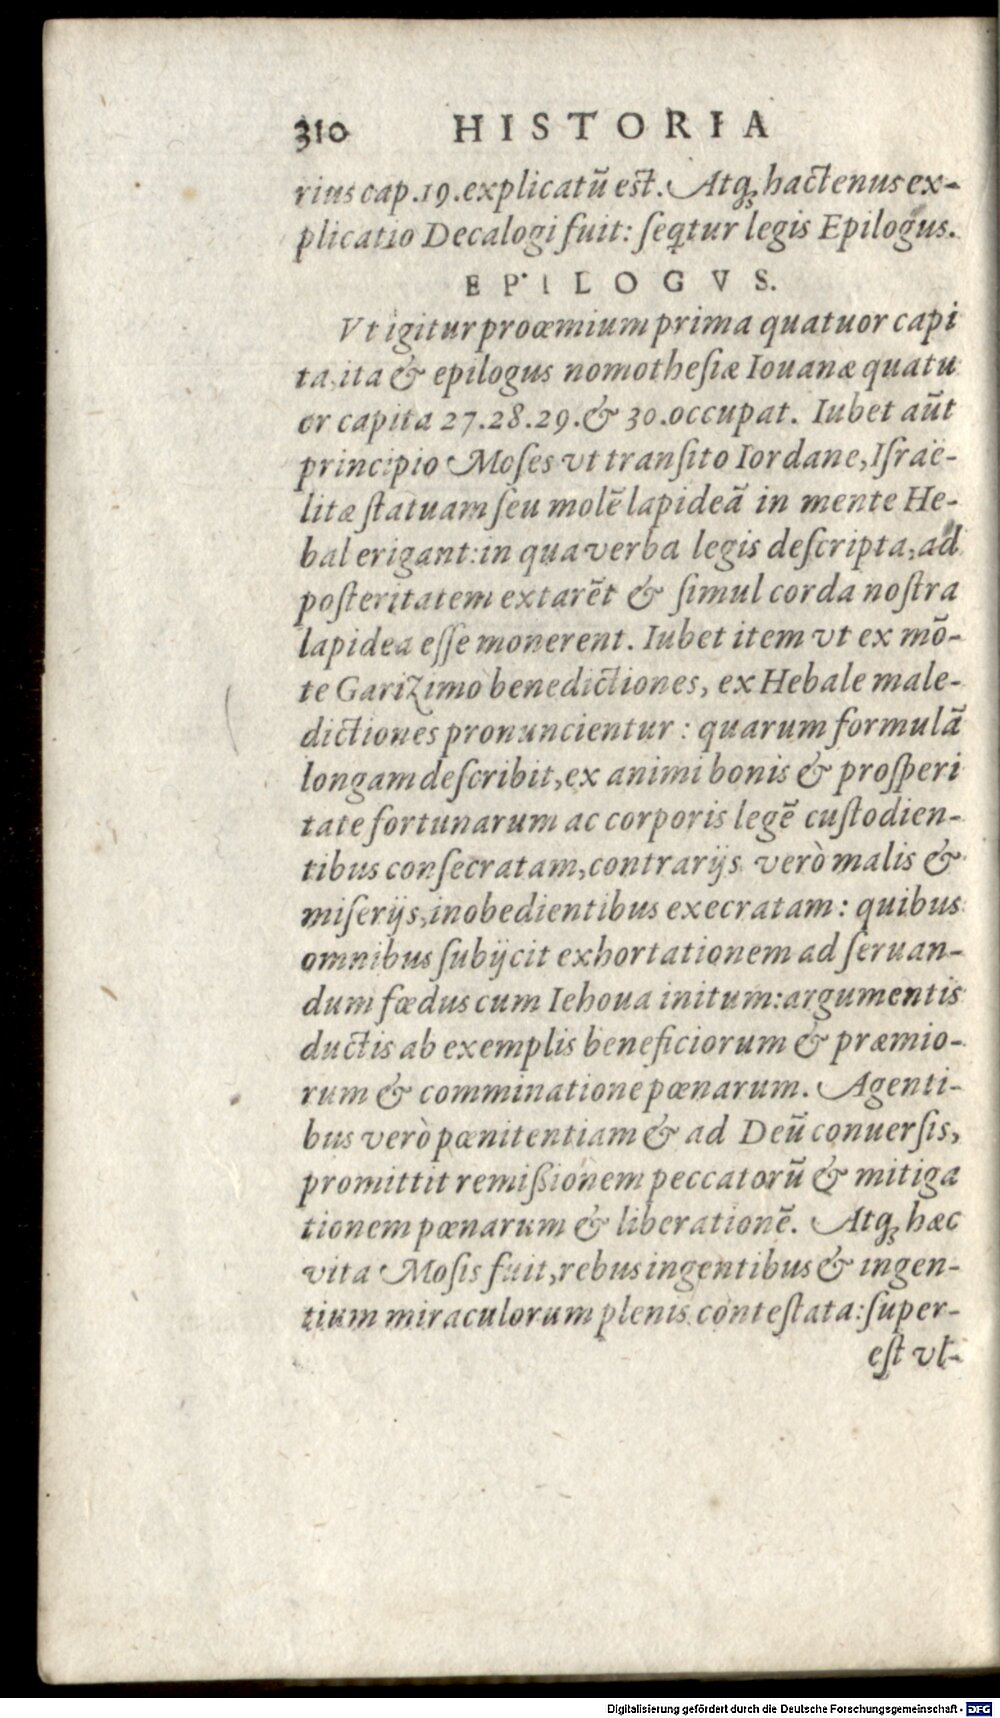 310 HISTORIA
rius cap.19.explicatũ est. Atq; hactenus ex-
plicatio Decalogi fuit: ſeqtur legis Epilogus.
EPILOGVS.
Vt igitur proœmium prima quatuor capi
ta, ita & epilogus nomotheſiæ Iouanæ quatu
or capita 27.28.29.& 30.occupat. Iubet aũt
principio Moſes vt tranſito Iordane, Iſraë-
litæ ſtatuam ſeu molẽ lapideã in mente He-
bal erigant: in qua verba legis deſcripta, ad
poſteritatem extarẽt & ſimul corda noſtra
lapidea eſſe monerent. Iubet item vt ex mõ-
te Garizimo benedictiones, ex Hebale male-
dictiones pronuncientur : quarum formulã
longam deſcribit, ex animi bonis & proſperi
tate fortunarum ac corporis legẽ cuſtodien-
tibus conſecratam, contrarijs verò malis &
miſerijs, inobedientibus execratam : quibus
omnibus ſubijcit exhortationem ad ſeruan-
dum fœdus cum Iehoua initum: argumentis
ductis ab exemplis beneficiorum & præmio-
rum & comminatione pœnarum. Agenti-
bus verò pœnitentiam & ad Deũ conuerſis,
promittit remiſsionem peccatorũ & mitiga
tionem pœnarum & liberationẽ. Atq; hæc
vita Moſis fuit, rebus ingentibus & ingen-
tium miraculorum plenis conteſtata: ſuper-
eſt vl-
Digitalisierung gefördert durch die Deutsche Forschungsgemeinschaft - DFG